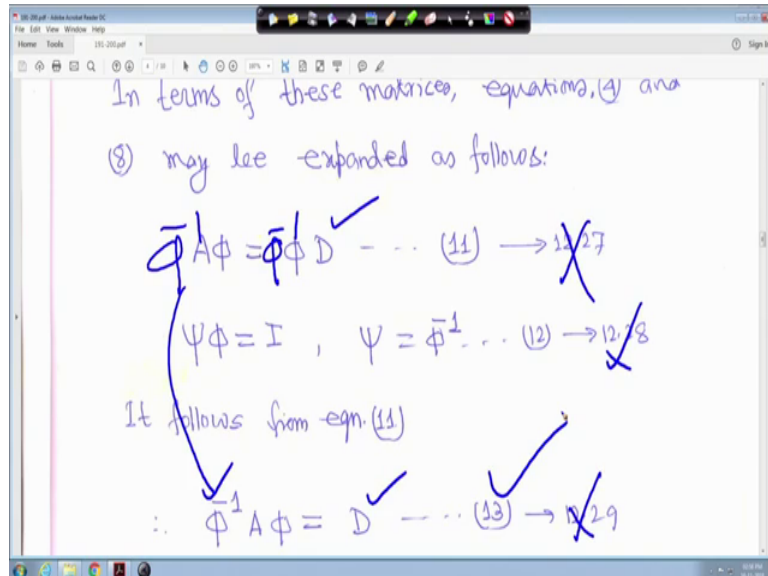 191-200.pdf - Adobe Acrobat Reader DC
File Edit View Window Help
Home Tools 191-200.pdf × Sign In
In terms of these matrices, equations, (4) and
(8) may lee expanded as follows:
Φ̄¹ A Φ = Φ̄¹ Φ D --- (11) → 12.27
ΨΦ = I , Ψ = Φ̄¹ ... (12) → 12.28
It follows from eqn. (11)
∴ Φ̄¹ A Φ = D ---- (13) → 12.29